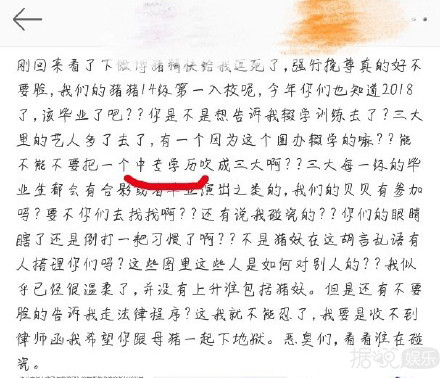 刚回来看了下微博猪猪快给我逗死了，强行挽尊真的好不
要脸，我们的猪猪14级第一入校呢，今年你们也知道2018
了，该毕业了吧？？你是不是想告诉我辍学训练去了？三大
里的艺人多了去了，有一个因为这个团办辍学的嘛？？能
不能不要把一个中专学历吹成三大啊？？三大每一级的毕
业生都会有合影或者毕业演出之类的，我们的贝贝有参加
吗？要不你们去找找啊？？还有说我碰瓷的？？你们的眼睛
瞎了还是倒打一耙习惯了啊？？不是猪妖在这胡言乱语有
人搭理你们吗？这些图里这些人是如何对别人的？？我似
乎已经很温柔了，并没有上升谁包括猪妖。但是还有不要
脸的告诉我走法律程序？这我就不能忍了，我要是收不到
律师函我希望你跟母猪一起下地狱。恶臭们，看看谁在碰
瓷。
据说娱乐